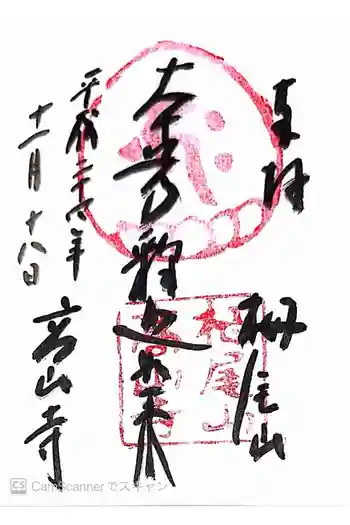 奉拝
栂尾山
本尊釈迦如来
平成二十六年
十一月十八日
高山寺
栂尾山
高山寺
CS CamScanner でスキャン